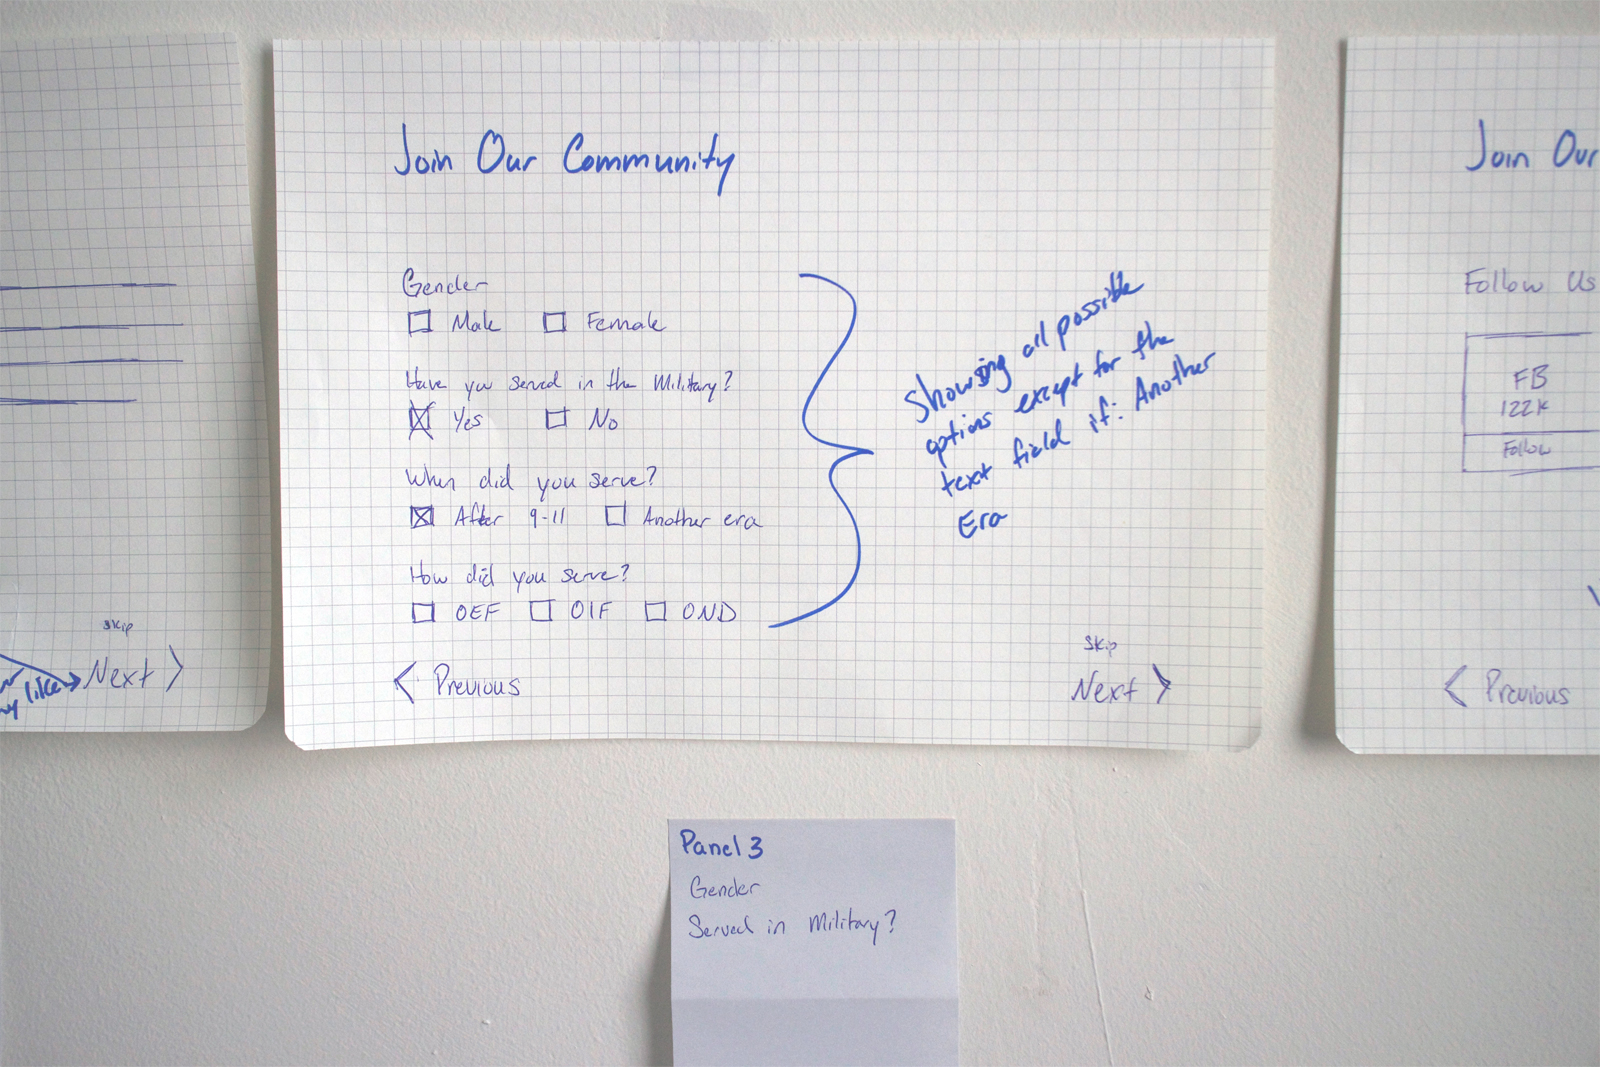 skip
like
Next >
Join Our Community
Gender
Male Female
Have you served in the Military?
Yes No
When did you serve?
After 9-11 Another era
How did you serve?
OEF OIF OND
< Previous
skip
Next >
Showing all possible
options except for the
text field if: Another
Era
Join Our
Follow Us
FB
122K
Follow
< Previous
Panel 3
Gender
Served in Military?